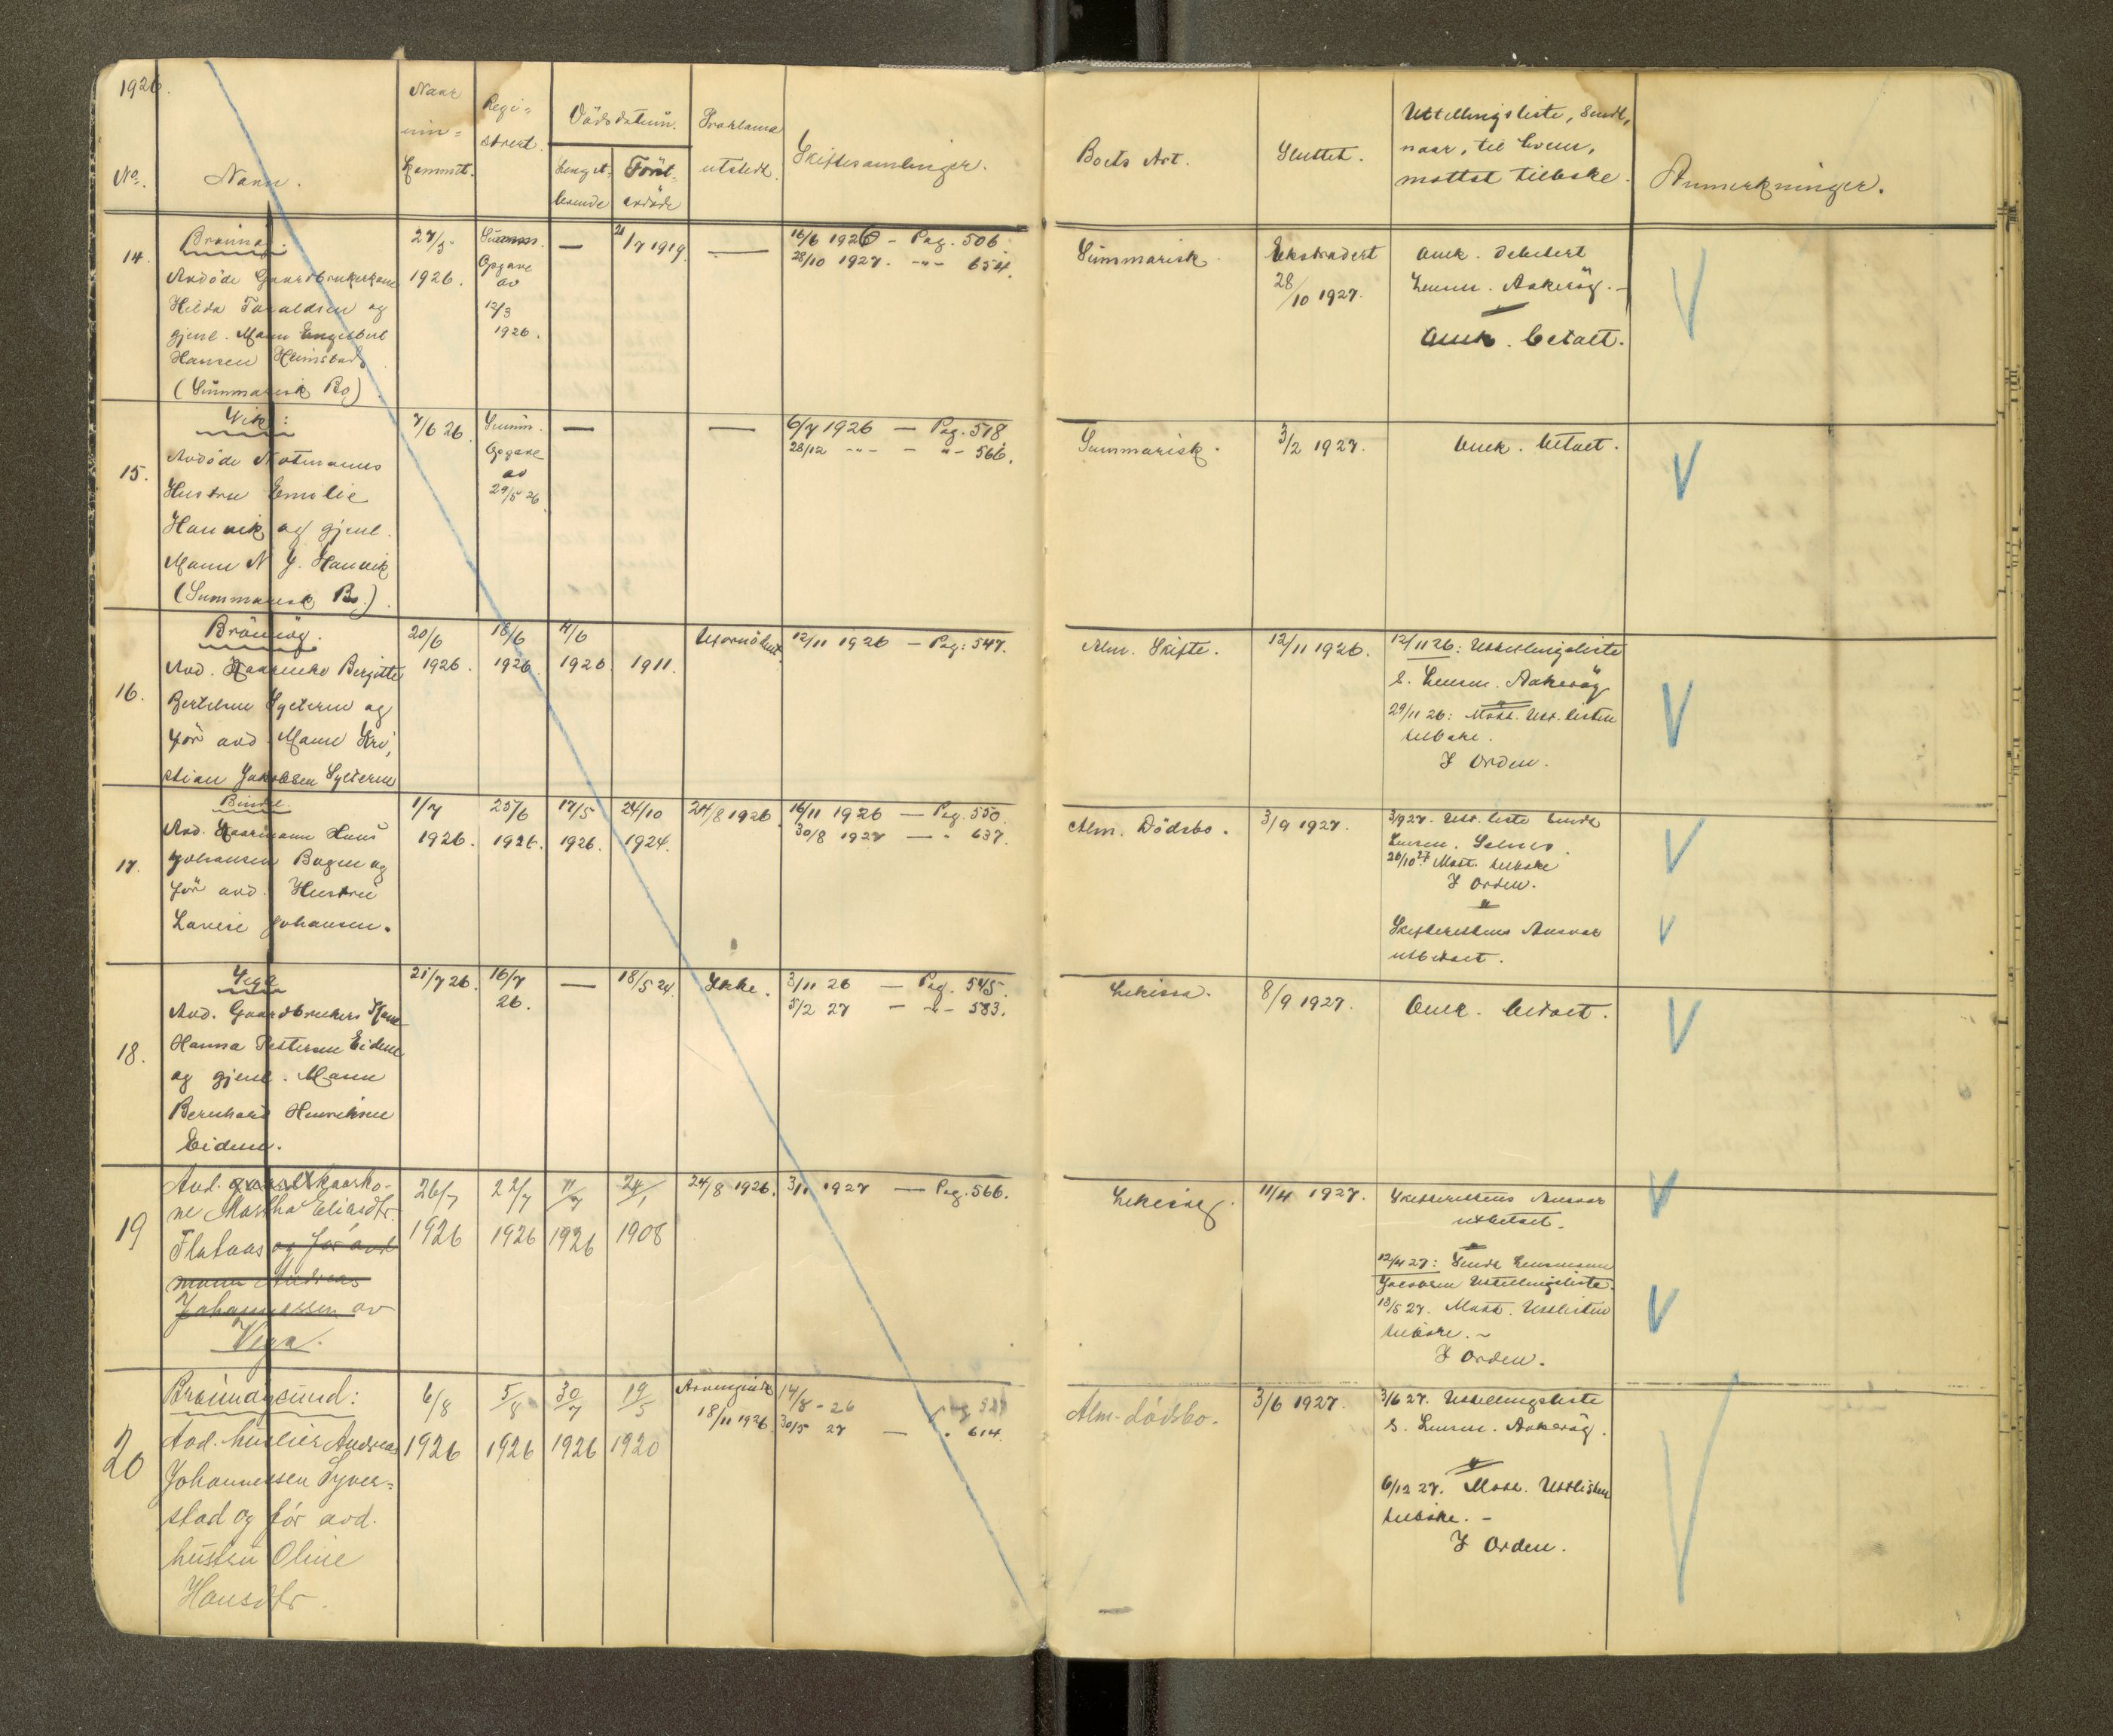 1926.
No.
Navn.
Naar
inn-
kommet.
Regi-
strert.
Dödsdatum.
Lengst-
levende
Först-
avdöde
Proklama
utstedt.
Skiftesamlinger.
Boets Art.
Sluttet.
Uttellingsliste, sendt,
naar, til hvem,
mottat tilbake.
Anmerkninger.
14.
Brönnöy.
Avdöde Gaardbrukerkone
Hilda Taraldsen og
gjenl. Mann Engelbert
Hansen Heimstad
(Summarisk Bo)
27/5
1926.
Summ.
Opgave
av
12/3
1926.
—
21/7 1919
—
16/6 1926 - Pag. 506.
28/10 1927. -"- 654.
Summarisk.
Ekstradert
28/10 1927.
Omk. debitert
Lensm. Aakeröy. -
Omk. betalt.
15.
Vik:
Avdöde Notmanns
Hustru Emilie
Hanvik og gjenl.
Mann N J. Hanvik
(Summarisk Bo.)
7/6 26.
Summ.
Opgave
av
29/5 26
—
—
6/7 1926 — Pag. 518
28/12 -"- - "- 566.
Summarisk.
3/2 1927.
Omk. betalt.
16.
Brönnöy.
Avd. Kaarenke Bergitte
Bertelsen Sæterm og
för avd. Mann Kri-
stian Jakobsen Sæterm
20/6
1926.
18/6
1926.
4/6
1926
1911.
Ufornödent.
12/11 1926 — Pag: 547.
Alm. Skifte.
12/11 1926.
12/11 26: Uttellingsliste
s. Lensm. Aakeröy
29/11 26: Mott. Utt. listen
tilbake.
I Orden.
17.
Bindal.
Avd. Kaarmann Hans
Johansen Bogen og
för avd. Hustru
Lavise Johansen.
1/7
1926.
25/6
1926.
17/5
1926.
24/10
1924.
24/8 1926.
16/11 1926 — Pag. 550.
30/8 1927 — " 637.
Alm. Dödsbo.
3/9 1927.
3/9 27. Utt. liste sendt
Lensm.
26/10 27 Mott. tilbake
I Orden.
Skifterettens Ansvar
utbetalt.
18.
Vega
Avd. Gaardbrukers Kone
Hanna Pettersen Eidem
og gjenl. Mann
Bernhard Henriksen
Eidem.
21/7 26.
16/7
26.
—
18/5 24.
Ikke.
3/11 26 — Pag. 545.
5/2 27 — -"- 583.
8/9 1927.
Omk. betalt.
19
Avd. kaarko-
ne Martha Eliasdtr.
Flataas og för avd
mann Andreas
Johannessen av
Vega.
26/7
1926
22/7
1926
11/7
1926
24/1
1908
24/8 1926.
3/1 1927 — Pag. 566.
11/4 1927.
Skifterettens Ansvar
utbetalt.
12/4 27: Sendt Lensmann
Jacobsen Uttellingsliste.
13/5 27. Mott. Uttlisten
tilbake. -
I Orden.
20
Brönnöysund:
Avd. husleier Andreas
Johannessen Tyver-
stad og för avd.
hustru Oline
Hansdtr.
6/8
1926
5/8
1926
30/7
1926
19/5
1920
18/11 1926.
14/8 - 26
30/5 27 — " 614.
Alm. dödsbo.
3/6 1927.
3/6 27. Uttellingsliste
s. Lensm. Aakeröy.
6/12 27. Mott. Uttlisten
tilbake. -
I Orden.